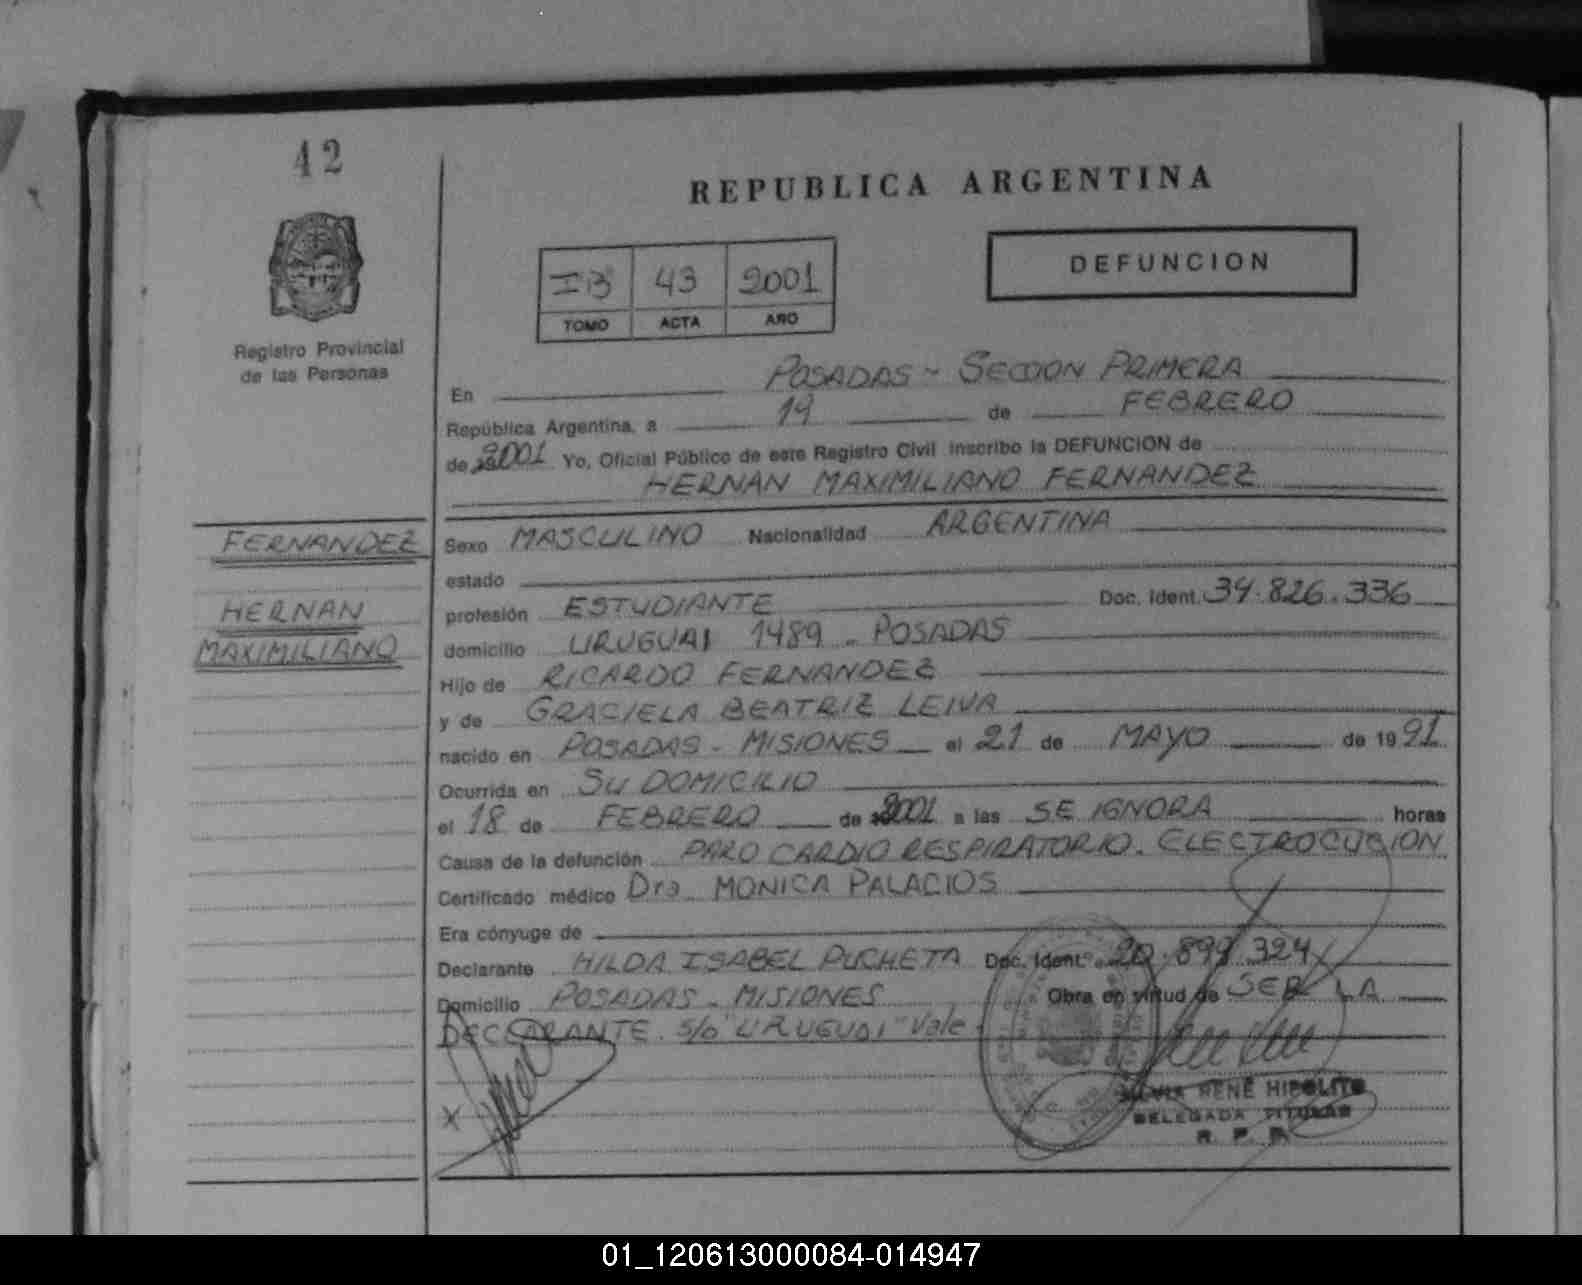 42
REPUBLICA ARGENTINA
DEFUNCION
IBº 43 2001
TOMO ACTA AÑO
Registro Provincial
de las Personas
En POSADAS - SECCION PRIMERA
República Argentina, a 19 de FEBRERO
de 2001 Yo, Oficial Público de este Registro Civil inscribo la DEFUNCION de
HERNAN MAXIMILIANO FERNANDEZ
FERNANDEZ
HERNAN
MAXIMILIANO
Sexo MASCULINO Nacionalidad ARGENTINA
estado
profesión ESTUDIANTE Doc. Ident. 34.826.336
domicilio URUGUAI 1489 - POSADAS
Hijo de RICARDO FERNANDEZ
y de GRACIELA BEATRIZ LEIVA
nacido en POSADAS - MISIONES el 21 de MAYO de 1991
Ocurrida en SU DOMICILIO
el 18 de FEBRERO de 2001 a las SE IGNORA horas
Causa de la defunción PARO CARDIO RESPIRATORIO. ELECTROCUCION
Certificado médico Dra. MONICA PALACIOS
Era cónyuge de
Declarante HILDA ISABEL PUCHETA Doc. Ident. 20.899.324
Domicilio POSADAS - MISIONES Obra en virtud de SER LA
DECLARANTE. S/o "URUGUAI" Vale
X
SILVIA RENÉ HIPOLITO
DELEGADA TITULAR
R. P. P.
01_120613000084-014947